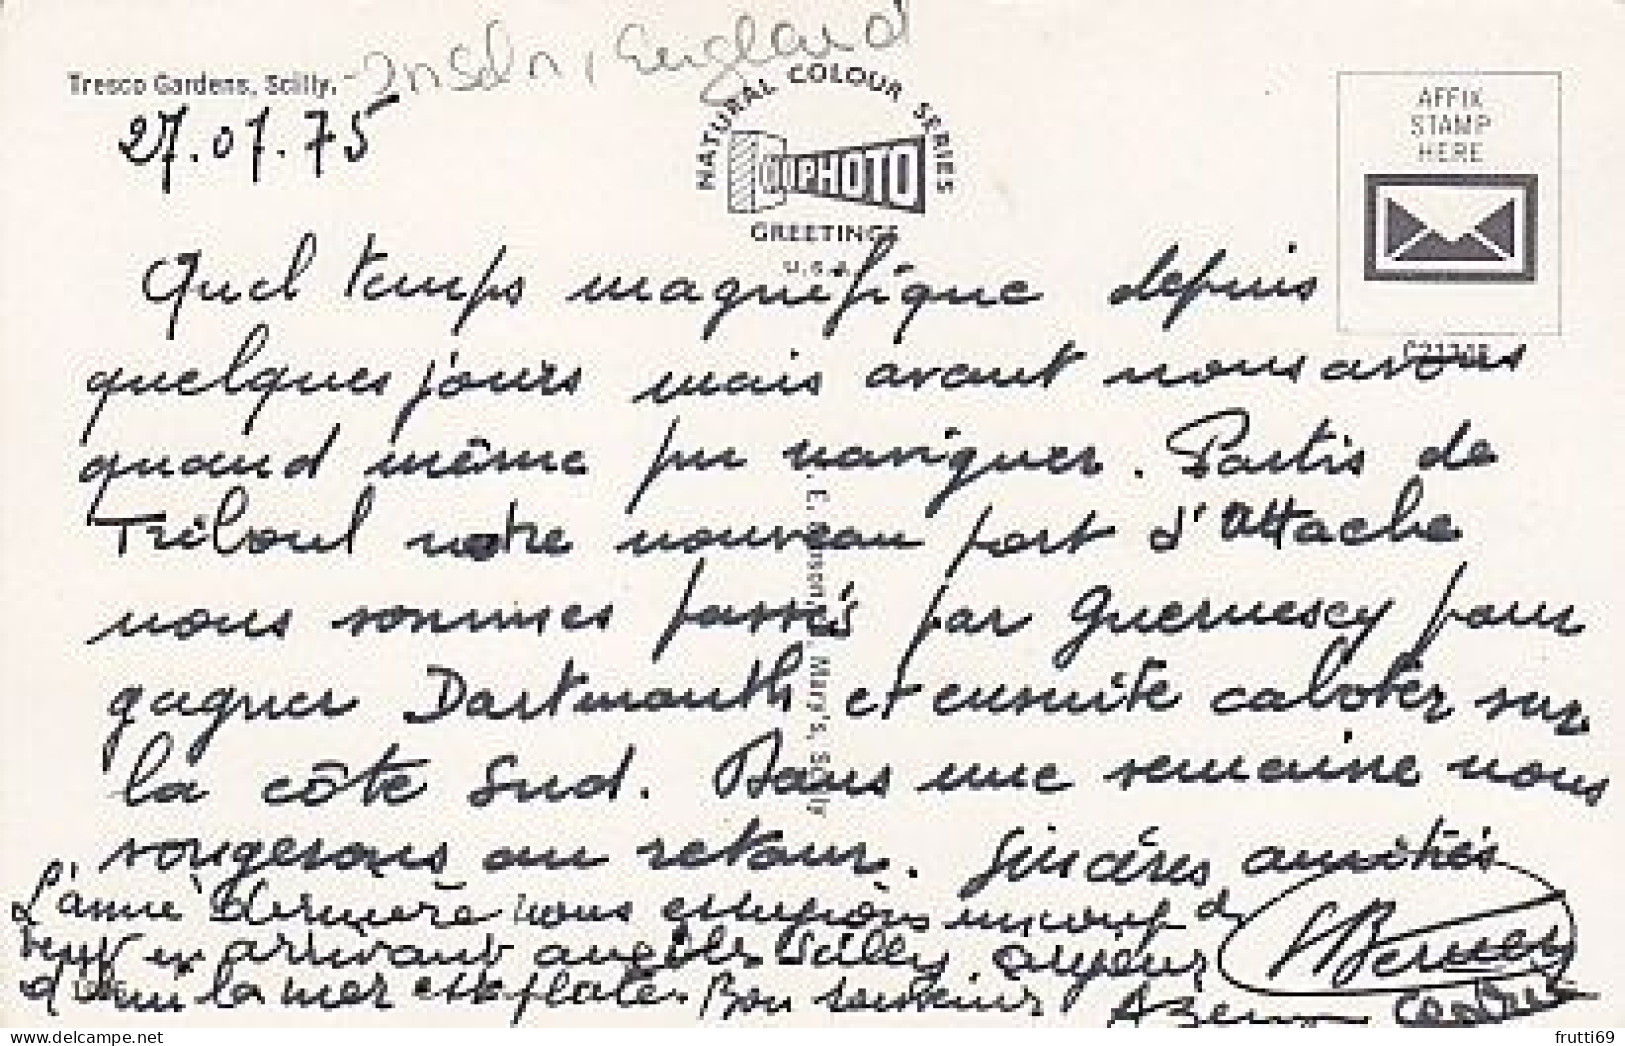 Tresco Gardens, Scilly.
Inseln, England
27.07.75
NATURAL COLOUR SERIES
PHOTO
GREETINGS
U.S.A.
AFFIX
STAMP
HERE
Quel temps magnifique depuis
quelques jours mais avant nous avons
quand même pu naviguer. Partis de
Tréboul notre nouveau port d'attache
nous sommes passés par Guernesey pour
gagner Dartmouth et ensuite caboter sur
la côte Sud. Dans une semaine nous
songerons au retour. Sincères amitiés
L'année dernière nous essuyions un coup de
vent en arrivant aux Iles Scilly. aujourd'hui la mer est plate. Bon souvenir
Mary's, Scilly
frutti69